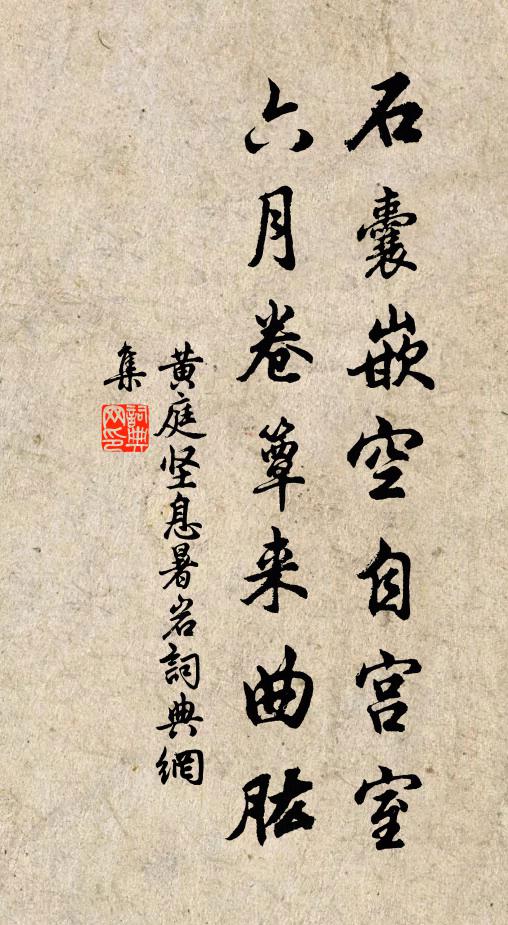 石囊嵌空自宫室
六月卷簟来曲肱
黄庭坚息暑岩詞典網
集
詞典
网印